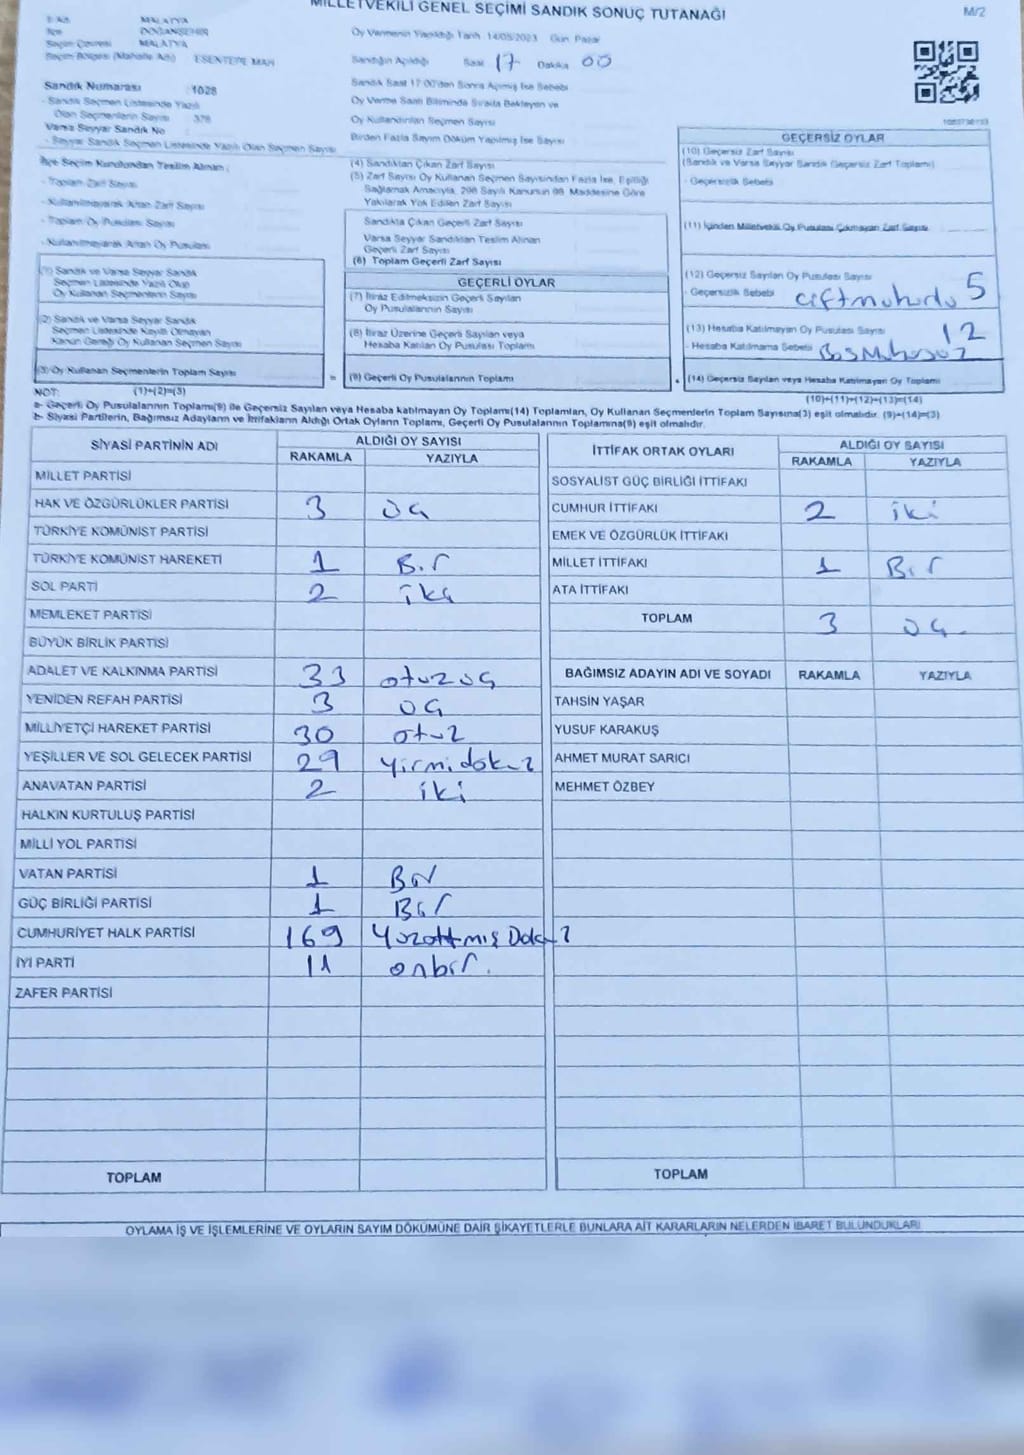 MİLLETVEKİLİ GENEL SEÇİMİ SANDIK SONUÇ TUTANAĞI
M/2
İli Adı MALATYA
İlçe DOĞANŞEHİR
Seçim Çevresi MALATYA
Seçim Bölgesi (Mahalle Adı) ESENTEPE MAH
Oy Vermenin Yapıldığı Tarih :14/05/2023 Gün: Pazar
Sandığın Açıldığı Saat 17 Dakika 00
Sandık Numarası :1028
- Sandık Seçmen Listesinde Yazılı
Olan Seçmenlerin Sayısı : 378
Varsa Seyyar Sandık No
- Seyyar Sandık Seçmen Listesinde Yazılı Olan Seçmen Sayısı
Sandık Saat 17:00'den Sonra Açılmış İse Sebebi
Oy Verme Saati Bitiminde Sırada Bekleyen ve
Oy Kullandırılan Seçmen Sayısı
Birden Fazla Sayım Döküm Yapılmış İse Sayısı
İlçe Seçim Kurulundan Teslim Alınan;
- Toplam Zarf Sayısı
- Kullanılmayarak Artan Zarf Sayısı
- Toplam Oy Pusulası Sayısı
- Kullanılmayarak Artan Oy Pusulası
(1) Sandık ve Varsa Seyyar Sandık
Seçmen Listesinde Yazılı Olup
Oy Kullanan Seçmenlerin Sayısı
(2) Sandık ve Varsa Seyyar Sandık
Seçmen Listesinde Kayıtlı Olmayan
Kanun Gereği Oy Kullanan Seçmen Sayısı
(3) Oy Kullanan Seçmenlerin Toplam Sayısı
(4) Sandıktan Çıkan Zarf Sayısı
(5) Zarf Sayısı Oy Kullanan Seçmen Sayısından Fazla İse, Eşitliği
Sağlamak Amacıyla, 298 Sayılı Kanunun 98. Maddesine Göre
Yakılarak Yok Edilen Zarf Sayısı
Sandıkta Çıkan Geçerli Zarf Sayısı
Varsa Seyyar Sandıktan Teslim Alınan
Geçerli Zarf Sayısı
(6) Toplam Geçerli Zarf Sayısı
GEÇERLİ OYLAR
(7) İtiraz Edilmeksizin Geçerli Sayılan
Oy Pusulasının Sayısı
(8) İtiraz Üzerine Geçerli Sayılan veya
Hesaba Katılan Oy Pusulası Toplamı
= (9) Geçerli Oy Pusulalarının Toplamı
GEÇERSİZ OYLAR
(10) Geçersiz Zarf Sayısı
(Sandık ve Varsa Seyyar Sandık Geçersiz Zarf Toplamı)
- Geçersizlik Sebebi
(11) İçinden Milletvekili Oy Pusulası Çıkmayan Zarf Sayısı
(12) Geçersiz Sayılan Oy Pusulası Sayısı 5
- Geçersizlik Sebebi
(13) Hesaba Katılmayan Oy Pusulası Sayısı 12
- Hesaba Katılmama Sebebi
+ (14) Geçersiz Sayılan veya Hesaba Katılmayan Oy Toplamı
NOT: (1)+(2)=(3)
(10)+(11)+(12)+(13)=(14)
a- Geçerli Oy Pusulalarının Toplamı(9) ile Geçersiz Sayılan veya Hesaba katılmayan Oy Toplamı(14) Toplamları, Oy Kullanan Seçmenlerin Toplam Sayısına(3) eşit olmalıdır. (9)+(14)=(3)
b- Siyasi Partilerin, Bağımsız Adayların ve İttifakların Aldığı Ortak Oyların Toplamı, Geçerli Oy Pusulalarının Toplamına(9) eşit olmalıdır.
SİYASİ PARTİNİN ADI ALDIĞI OY SAYISI
RAKAMLA YAZIYLA
MİLLET PARTİSİ
HAK VE ÖZGÜRLÜKLER PARTİSİ 3 üç
TÜRKİYE KOMÜNİST PARTİSİ
TÜRKİYE KOMÜNİST HAREKETİ 1 Bir
SOL PARTİ 2 iki
MEMLEKET PARTİSİ
BÜYÜK BİRLİK PARTİSİ
ADALET VE KALKINMA PARTİSİ 33 otuzüç
YENİDEN REFAH PARTİSİ 3 üç
MİLLİYETÇİ HAREKET PARTİSİ 30 otuz
YEŞİLLER VE SOL GELECEK PARTİSİ 29 yirmidokuz
ANAVATAN PARTİSİ 2 iki
HALKIN KURTULUŞ PARTİSİ
MİLLİ YOL PARTİSİ
VATAN PARTİSİ 1 Bir
GÜÇ BİRLİĞİ PARTİSİ 1 Bir
CUMHURİYET HALK PARTİSİ 169 Yüzaltmış Dokuz
İYİ PARTİ 11 onbir.
ZAFER PARTİSİ
TOPLAM
İTTİFAK ORTAK OYLARI ALDIĞI OY SAYISI
RAKAMLA YAZIYLA
SOSYALİST GÜÇ BİRLİĞİ İTTİFAKI
CUMHUR İTTİFAKI 2 iki
EMEK VE ÖZGÜRLÜK İTTİFAKI
MİLLET İTTİFAKI 1 Bir
ATA İTTİFAKI
TOPLAM 3 üç.
BAĞIMSIZ ADAYIN ADI VE SOYADI RAKAMLA YAZIYLA
TAHSİN YAŞAR
YUSUF KARAKUŞ
AHMET MURAT SARICI
MEHMET ÖZBEY
TOPLAM
OYLAMA İŞ VE İŞLEMLERİNE VE OYLARIN SAYIM DÖKÜMÜNE DAİR ŞİKAYETLERLE BUNLARA AİT KARARLARIN NELERDEN İBARET BULUNDUKLARI